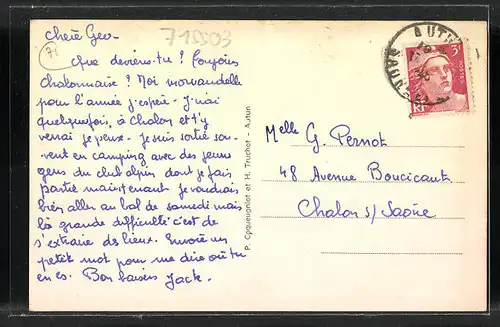 chère Geo-
715503
71
Que deviens-tu ? Toujours
chalonnaise ? Moi morvandelle
pour l'année j'espère - J'irai
quelquefois, à Chalon et t'y
verrai je pense - Je suis sortie sou-
vent en camping avec des jeunes
gens du club alpin dont je fais
partie maintenant. Je voudrais
bien aller au bal de samedi mais
la grande difficulté c'est de
s'extraire de lieux. Envoie un
petit mot pour me dire où tu
en es. Bons baisers Jack.
P. Coqueugniot et H. Truchot - Autun
AUTUN
3F
RF
Melle G. Pernot
48 Avenue Boucicaut
Chalon s/ Saône